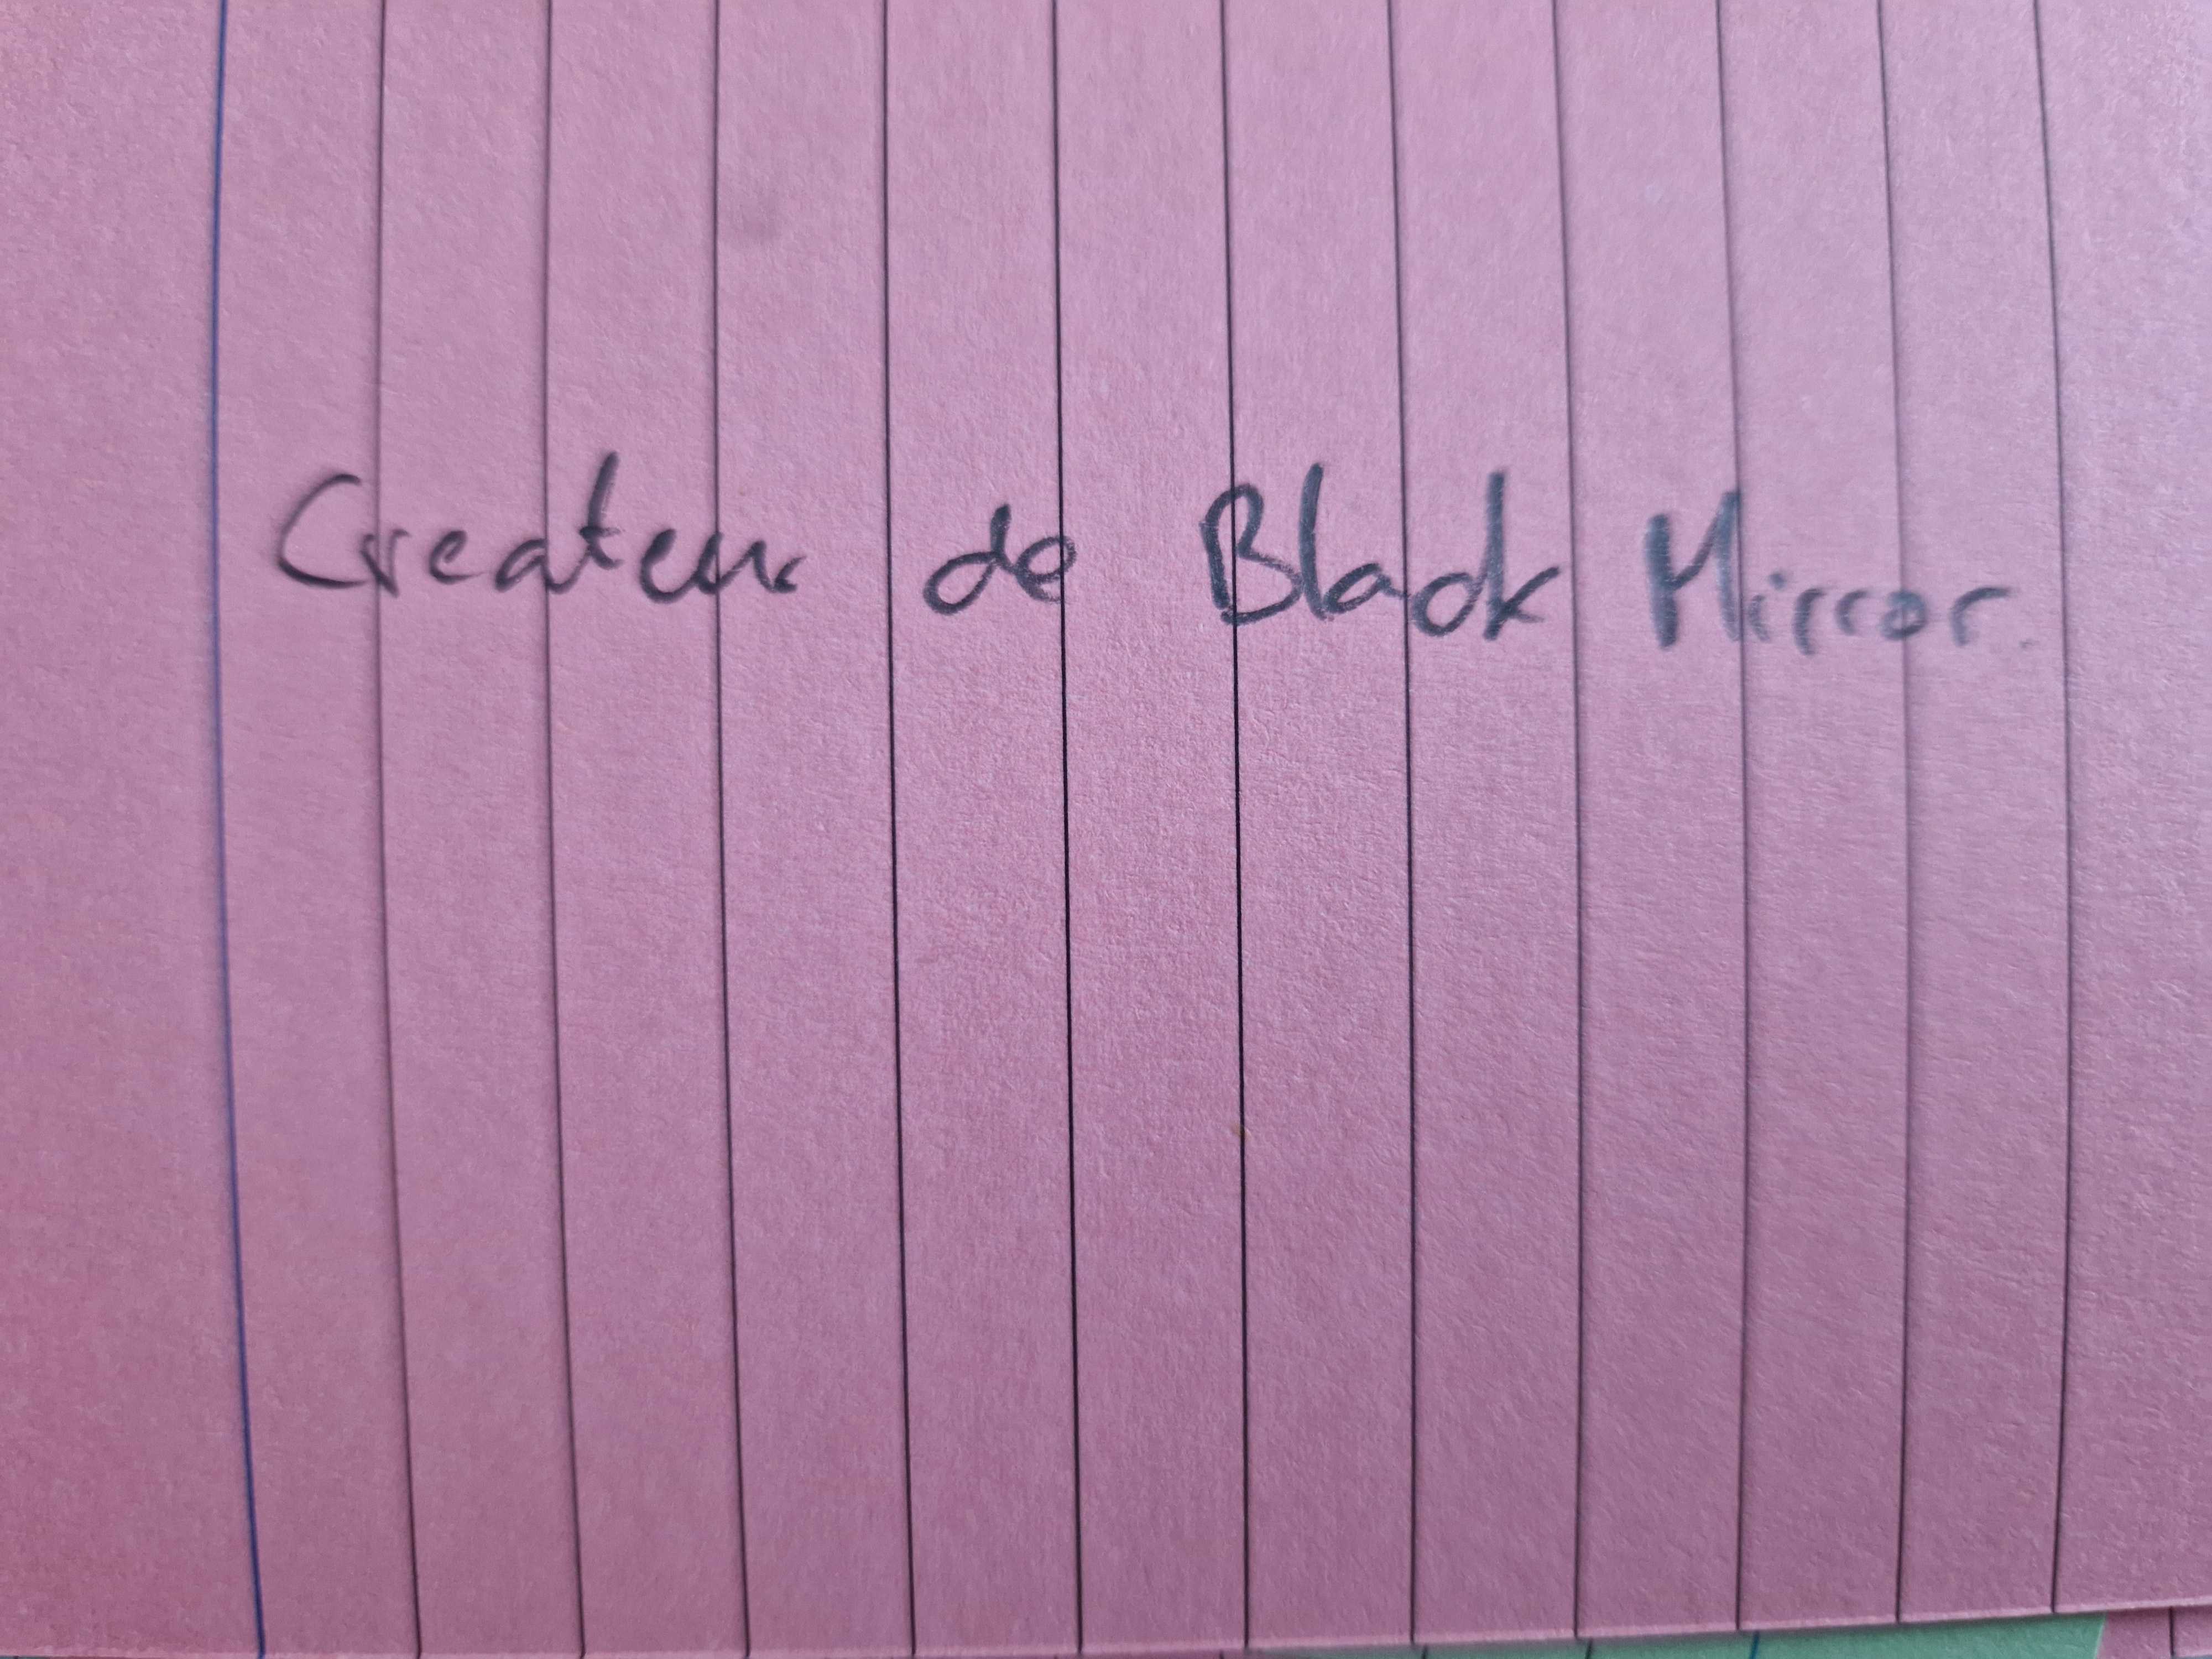 Createur de Black Mirror.